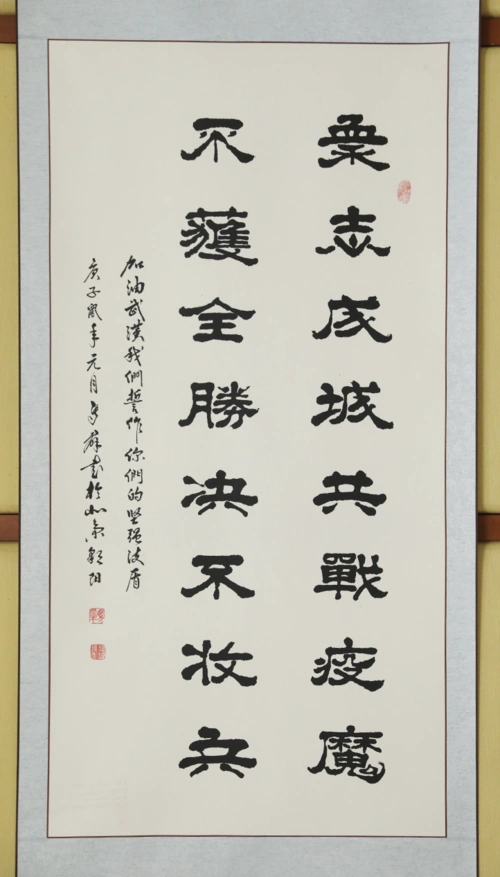 衆志成城共戰疫魔
不獲全勝决不收兵
加油武漢我們誓作你們的坚强後盾
庚子鼠年元月群書於北京朝阳